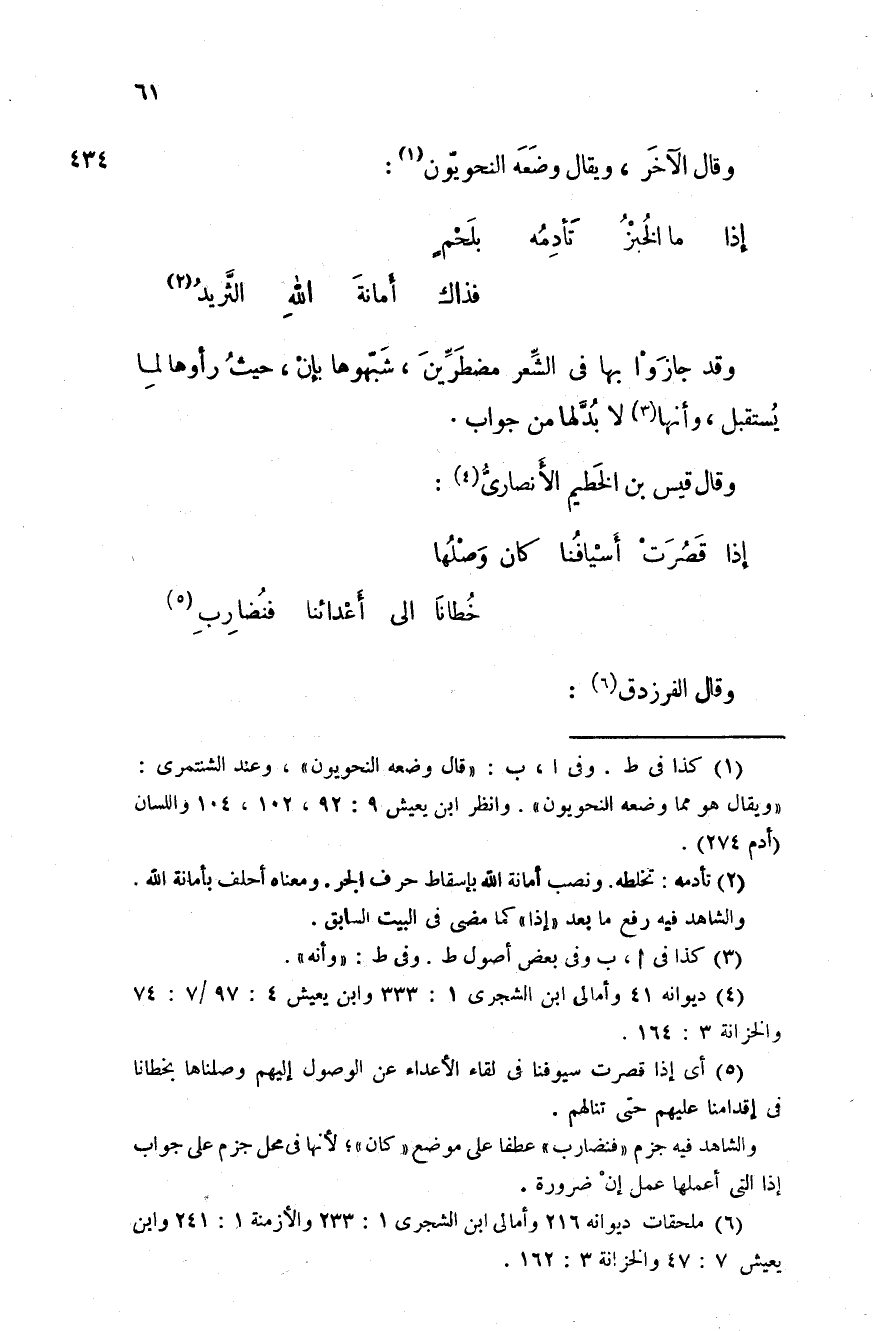 ٦١
وقال الآخَر ، ويقال وضَعَه النحويّون(١) : ٤٣٤
إذا ما الخُبزُ تَأدِمُه بلَحْمٍ
فذاك أمانةَ اللهِ الثَّريدُ(٢)
وقد جازَوْا بها فى الشِّعر مضطَرِّينَ ، شَبّهوها بإنْ ، حيثُ رأوها لِما
يُستقبل ، وأنها(٣) لا بُدَّ لها من جواب .
وقال قيس بن الخَطيم الأَنصارىُّ(٤) :
إذا قَصُرَتْ أَسْيافُنا كان وَصْلُها
خُطانَا الى أَعْدائنا فنُضارِبِ(٥)
وقال الفرزدق(٦) :
(١) كذا فى ط . وفى ا ، ب : «قال وضعه النحويون» ، وعند الشنتمرى :
«ويقال هو مما وضعه النحويون» . وانظر ابن يعيش ٩ : ٩٢ ، ١٠٢ ، ١٠٤ واللسان
(أدم ٢٧٤) .
(٢) تأدمه : تخلطه. ونصب أمانة الله بإسقاط حرف الجر. ومعناه أحلف بأمانة الله .
والشاهد فيه رفع ما بعد «إذا» كما مضى فى البيت السابق .
(٣) كذا فى أ ، ب وفى بعض أصول ط . وفى ط : «وأنه» .
(٤) ديوانه ٤١ وأمالى ابن الشجرى ١ : ٣٣٣ وابن يعيش ٤ : ٩٧ / ٧ : ٧٤
والخزانة ٣ : ١٦٤ .
(٥) أى إذا قصرت سيوفنا فى لقاء الأعداء عن الوصول إليهم وصلناها بخطانا
فى إقدامنا عليهم حتّى تنالهم .
والشاهد فيه جزم «فنضارب» عطفا على موضع «كان»؛ لأنها فى محل جزم على جواب
إذا التى أعملها عمل إنْ ضرورة .
(٦) ملحقات ديوانه ٢١٦ وأمالى ابن الشجرى ١ : ٢٣٣ والأزمنة ١ : ٢٤١ وابن
يعيش ٧ : ٤٧ والخزانة ٣ : ١٦٢ .